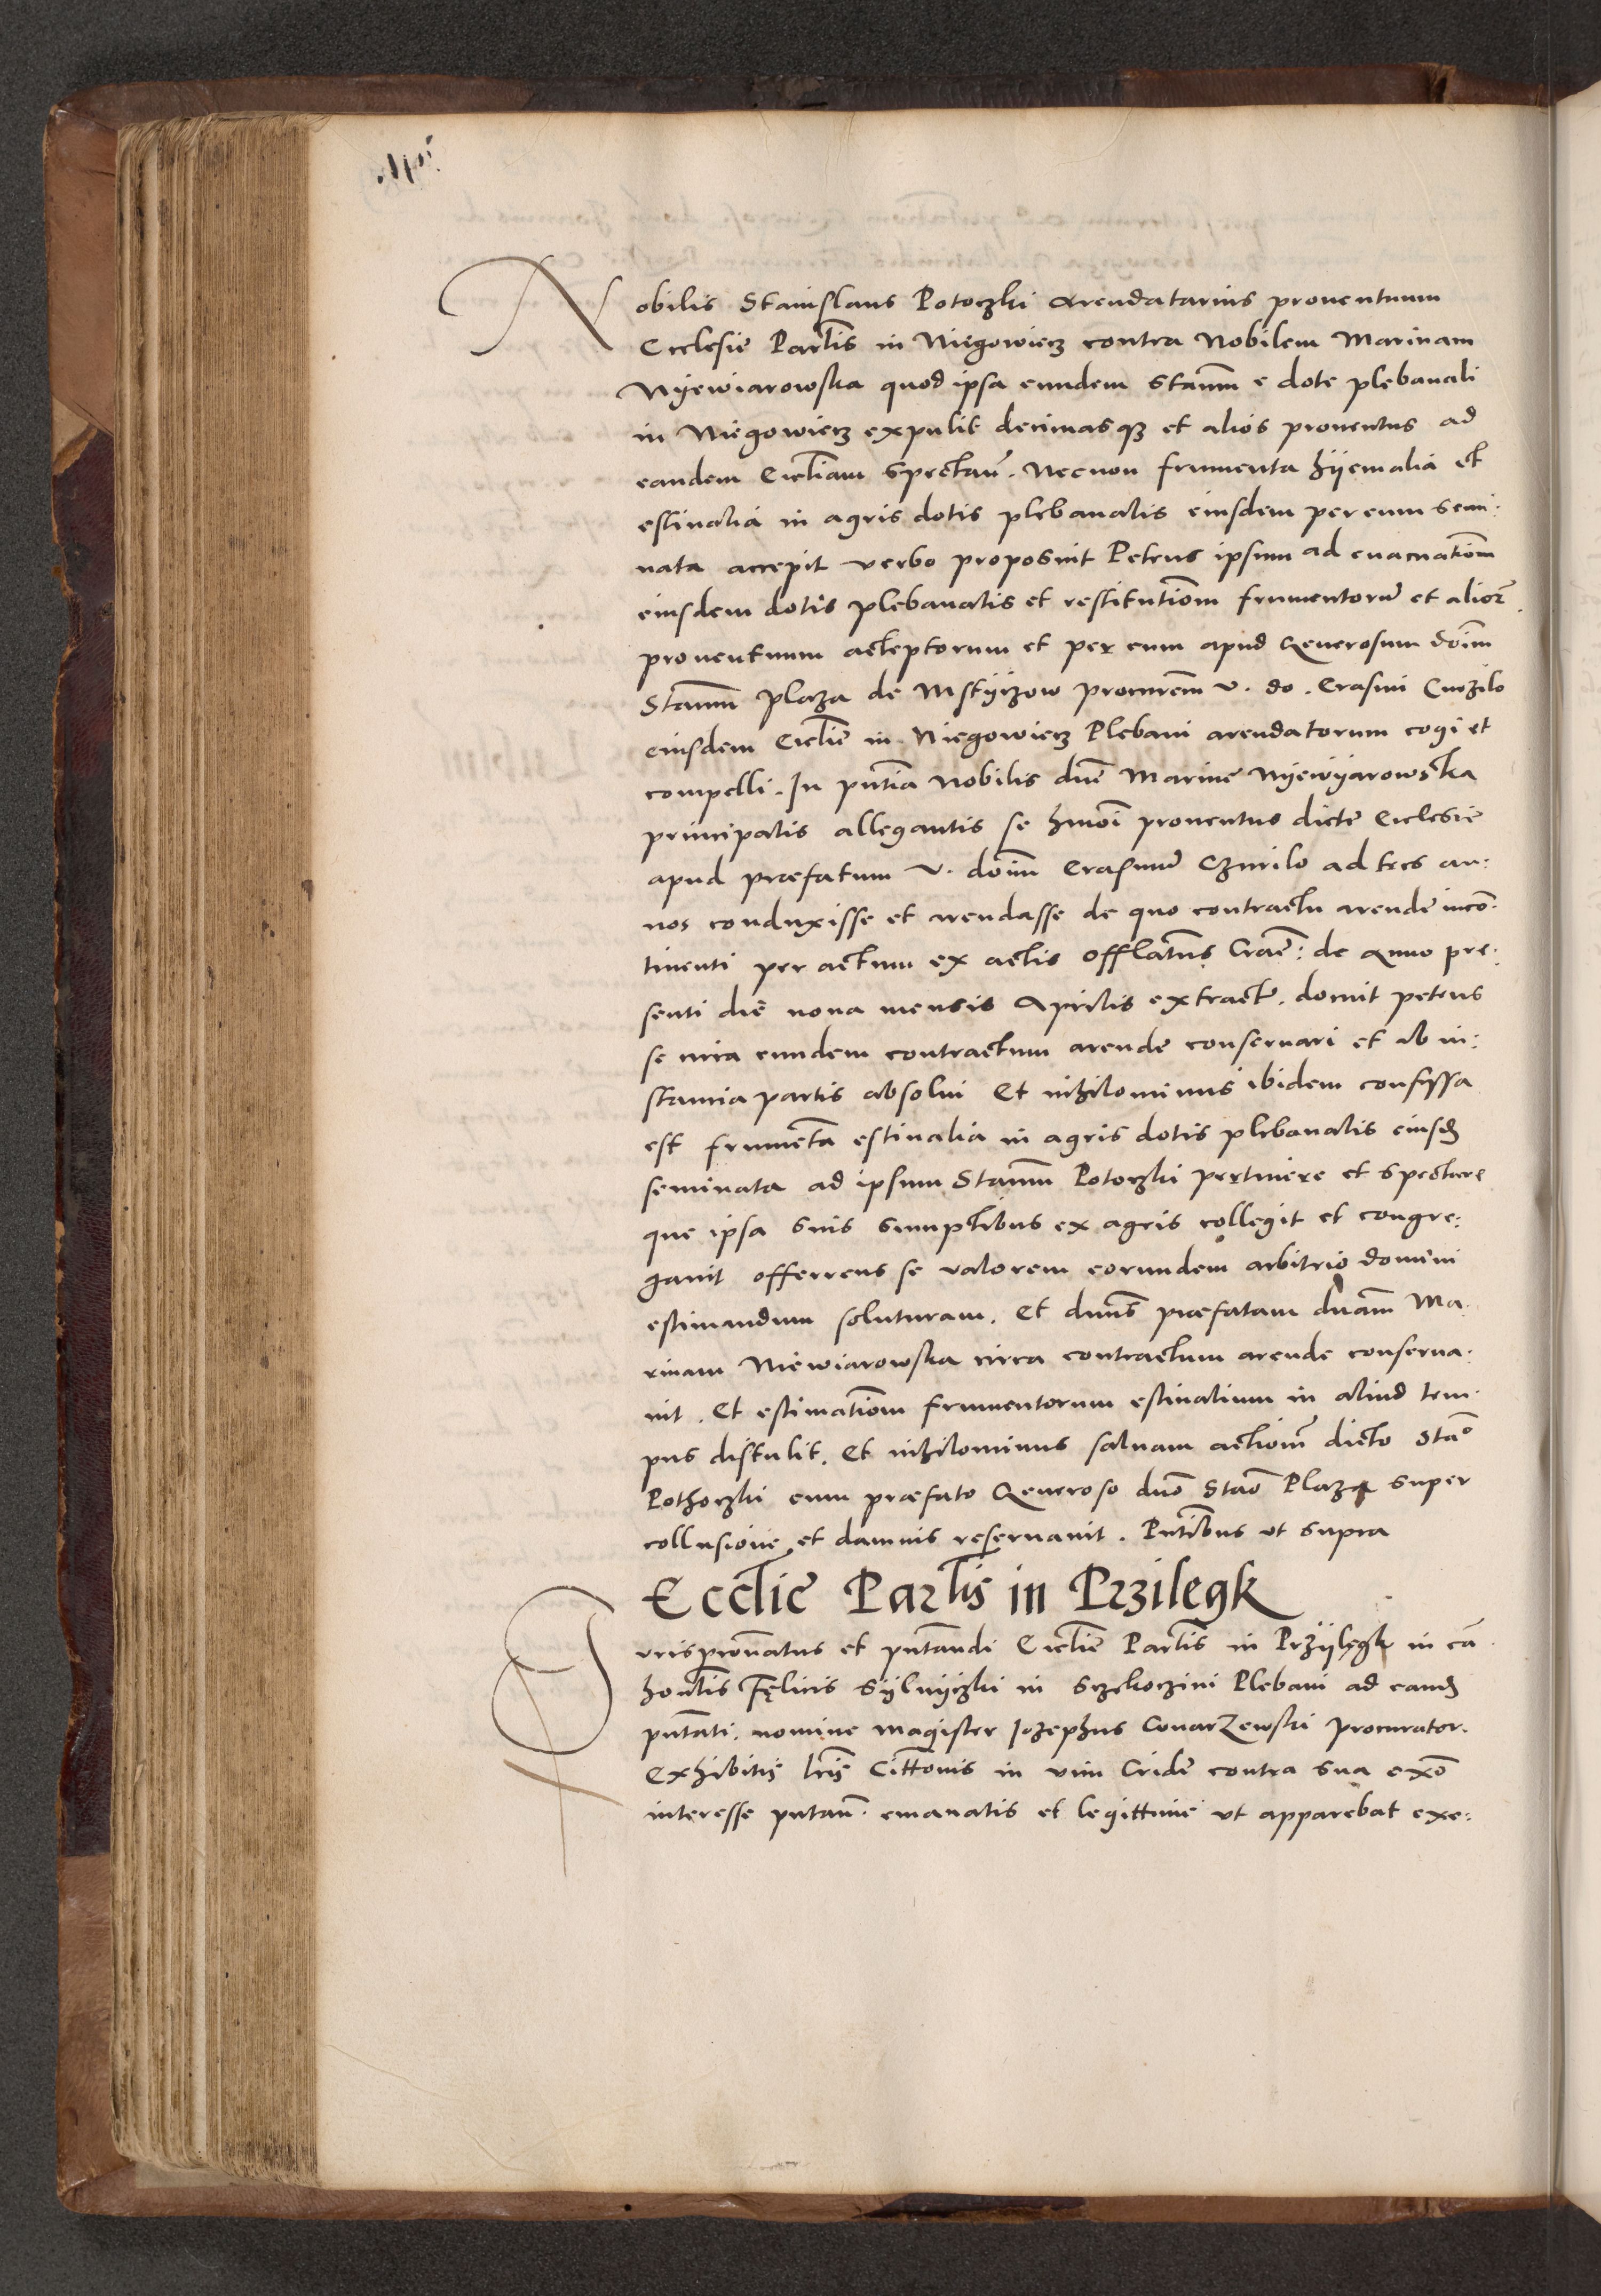 Nobilis Stanislaus Potoczki Arendatarius prouentuum
Ecclesie Partis in Niegowiecz contra Nobilem Marinam
Nyewiarowska quod ipsa eundem Stanm e dote plebanali
in Niegowiecz expulit decimasqz et alios prouentus ad
eandem Eccliam Spectan. Necnon frumenta hyemalia et
estiualia in agris dotis plebanalis eiusdem per eum semi:
nata accepit verbo proposuit Petens ipsum ad euacuationem
eiusdem dotis plebanalis et restitutionem frumentorum et alior
prouentuum acceptorum et per eum apud Generosum doim
Stanm Plaza de Mstyczow procurem v. do. Erasmi Cwrzilo
eiusdem Ecclie in Niegowiecz Plebani arendatorum cogi et
compelli. In pntia Nobilis dne Marine Nyewyarowska
principalis allegantis se hmoi prouentus dicte Ecclesie
apud præfatum v. doim Erasmum Czurilo ad tres an:
nos conduxisse et arendasse de quo contractu arende incon:
tinenti per actum ex actis Offlatus Crac: de Anno pre:
senti die nona mensis Aprilis extract. docuit petens
se circa eundem contractum arende conseruari et ab in:
stancia partis absolui Et nihilominus ibidem confessa
est frumenta estiualia in agris dotis plebanalis eiusd
seminata ad ipsum Stanm Potoczki pertinere et spectare
que ipsa suis sumptibus ex agris collegit et congre:
gauit offerrens se valorem eorundem arbitrio domini
estimandum soluturam. Et dnus præfatam dnam Ma:
rinam Niewiarowska circa contractum arende conserua:
uit. Et estimationem frumentorum estiualium in aliud tem:
pus distulit. Et nihilominus saluam actionem dicto Stao
Pothoczki cum præfato Generoso dno Stao Plaza super
collusione et damnis reseruauit. Pntibus vt supra
Ecclie Partis in Przilegk
Jurispronatus et pntandi Ecclie Partis in Przylegk in ca
honlis Felicis Sylnyczki in Sczekoczini Plebani ad eand
pntati. nomine magister Jozephus ConarZewski procurator.
Exhibitis lris Cittonis in vim Cride contra sua exo
interesse putan. emanatis et legittime vt apparebat exe: